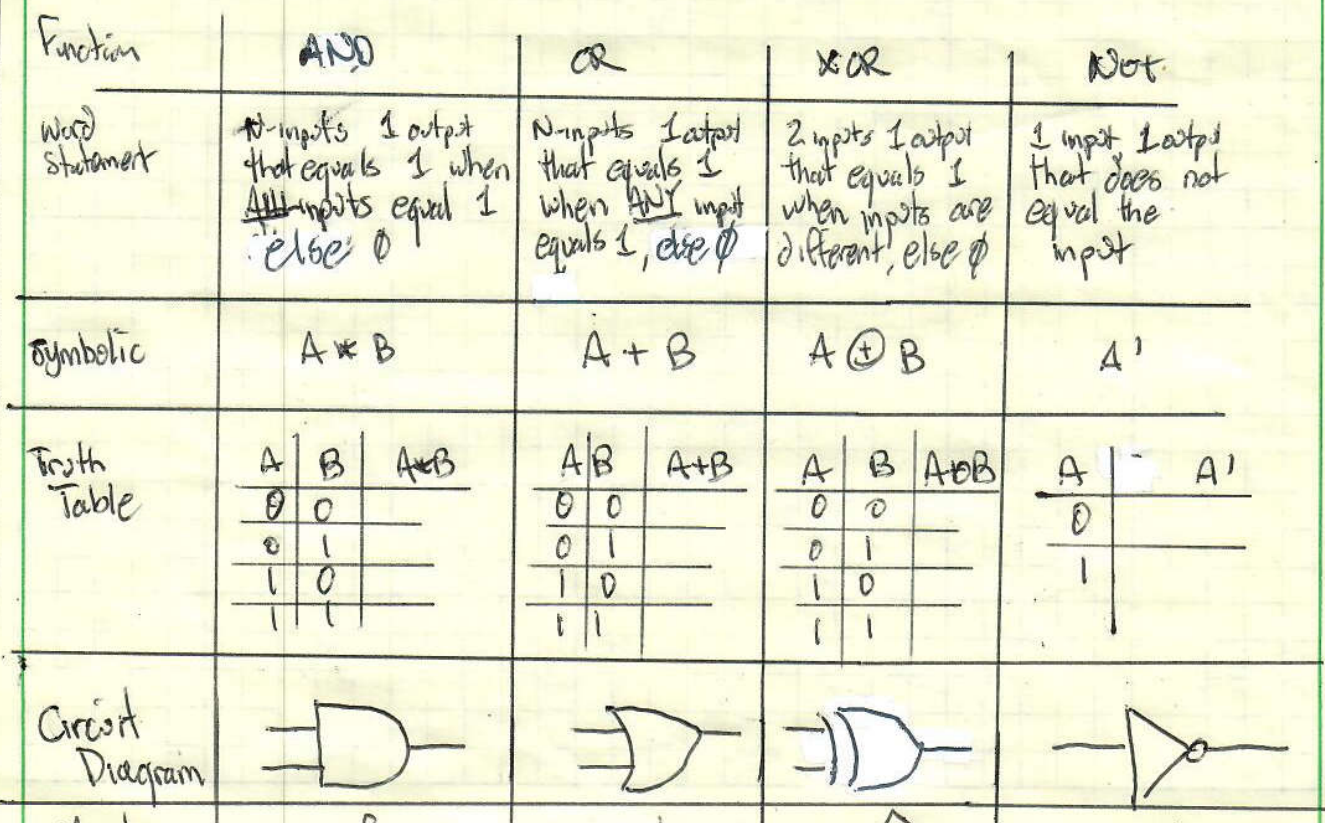 Function AND OR XOR Not
Word Statement
N-inputs 1 output
that equals 1 when
All inputs equal 1
else 0
N-inputs 1 output
that equals 1
when ANY input
equals 1, else 0
2 inputs 1 output
that equals 1
when inputs are
different, else 0
1 input 1 output
that does not
equal the
input
Symbolic A * B A + B A ⊕ B A'
Truth
Table
A B A*B
0 0
0 1
1 0
1 1
A B A+B
0 0
0 1
1 0
1 1
A B A⊕B
0 0
0 1
1 0
1 1
A A'
0
1
Circuit
Diagram